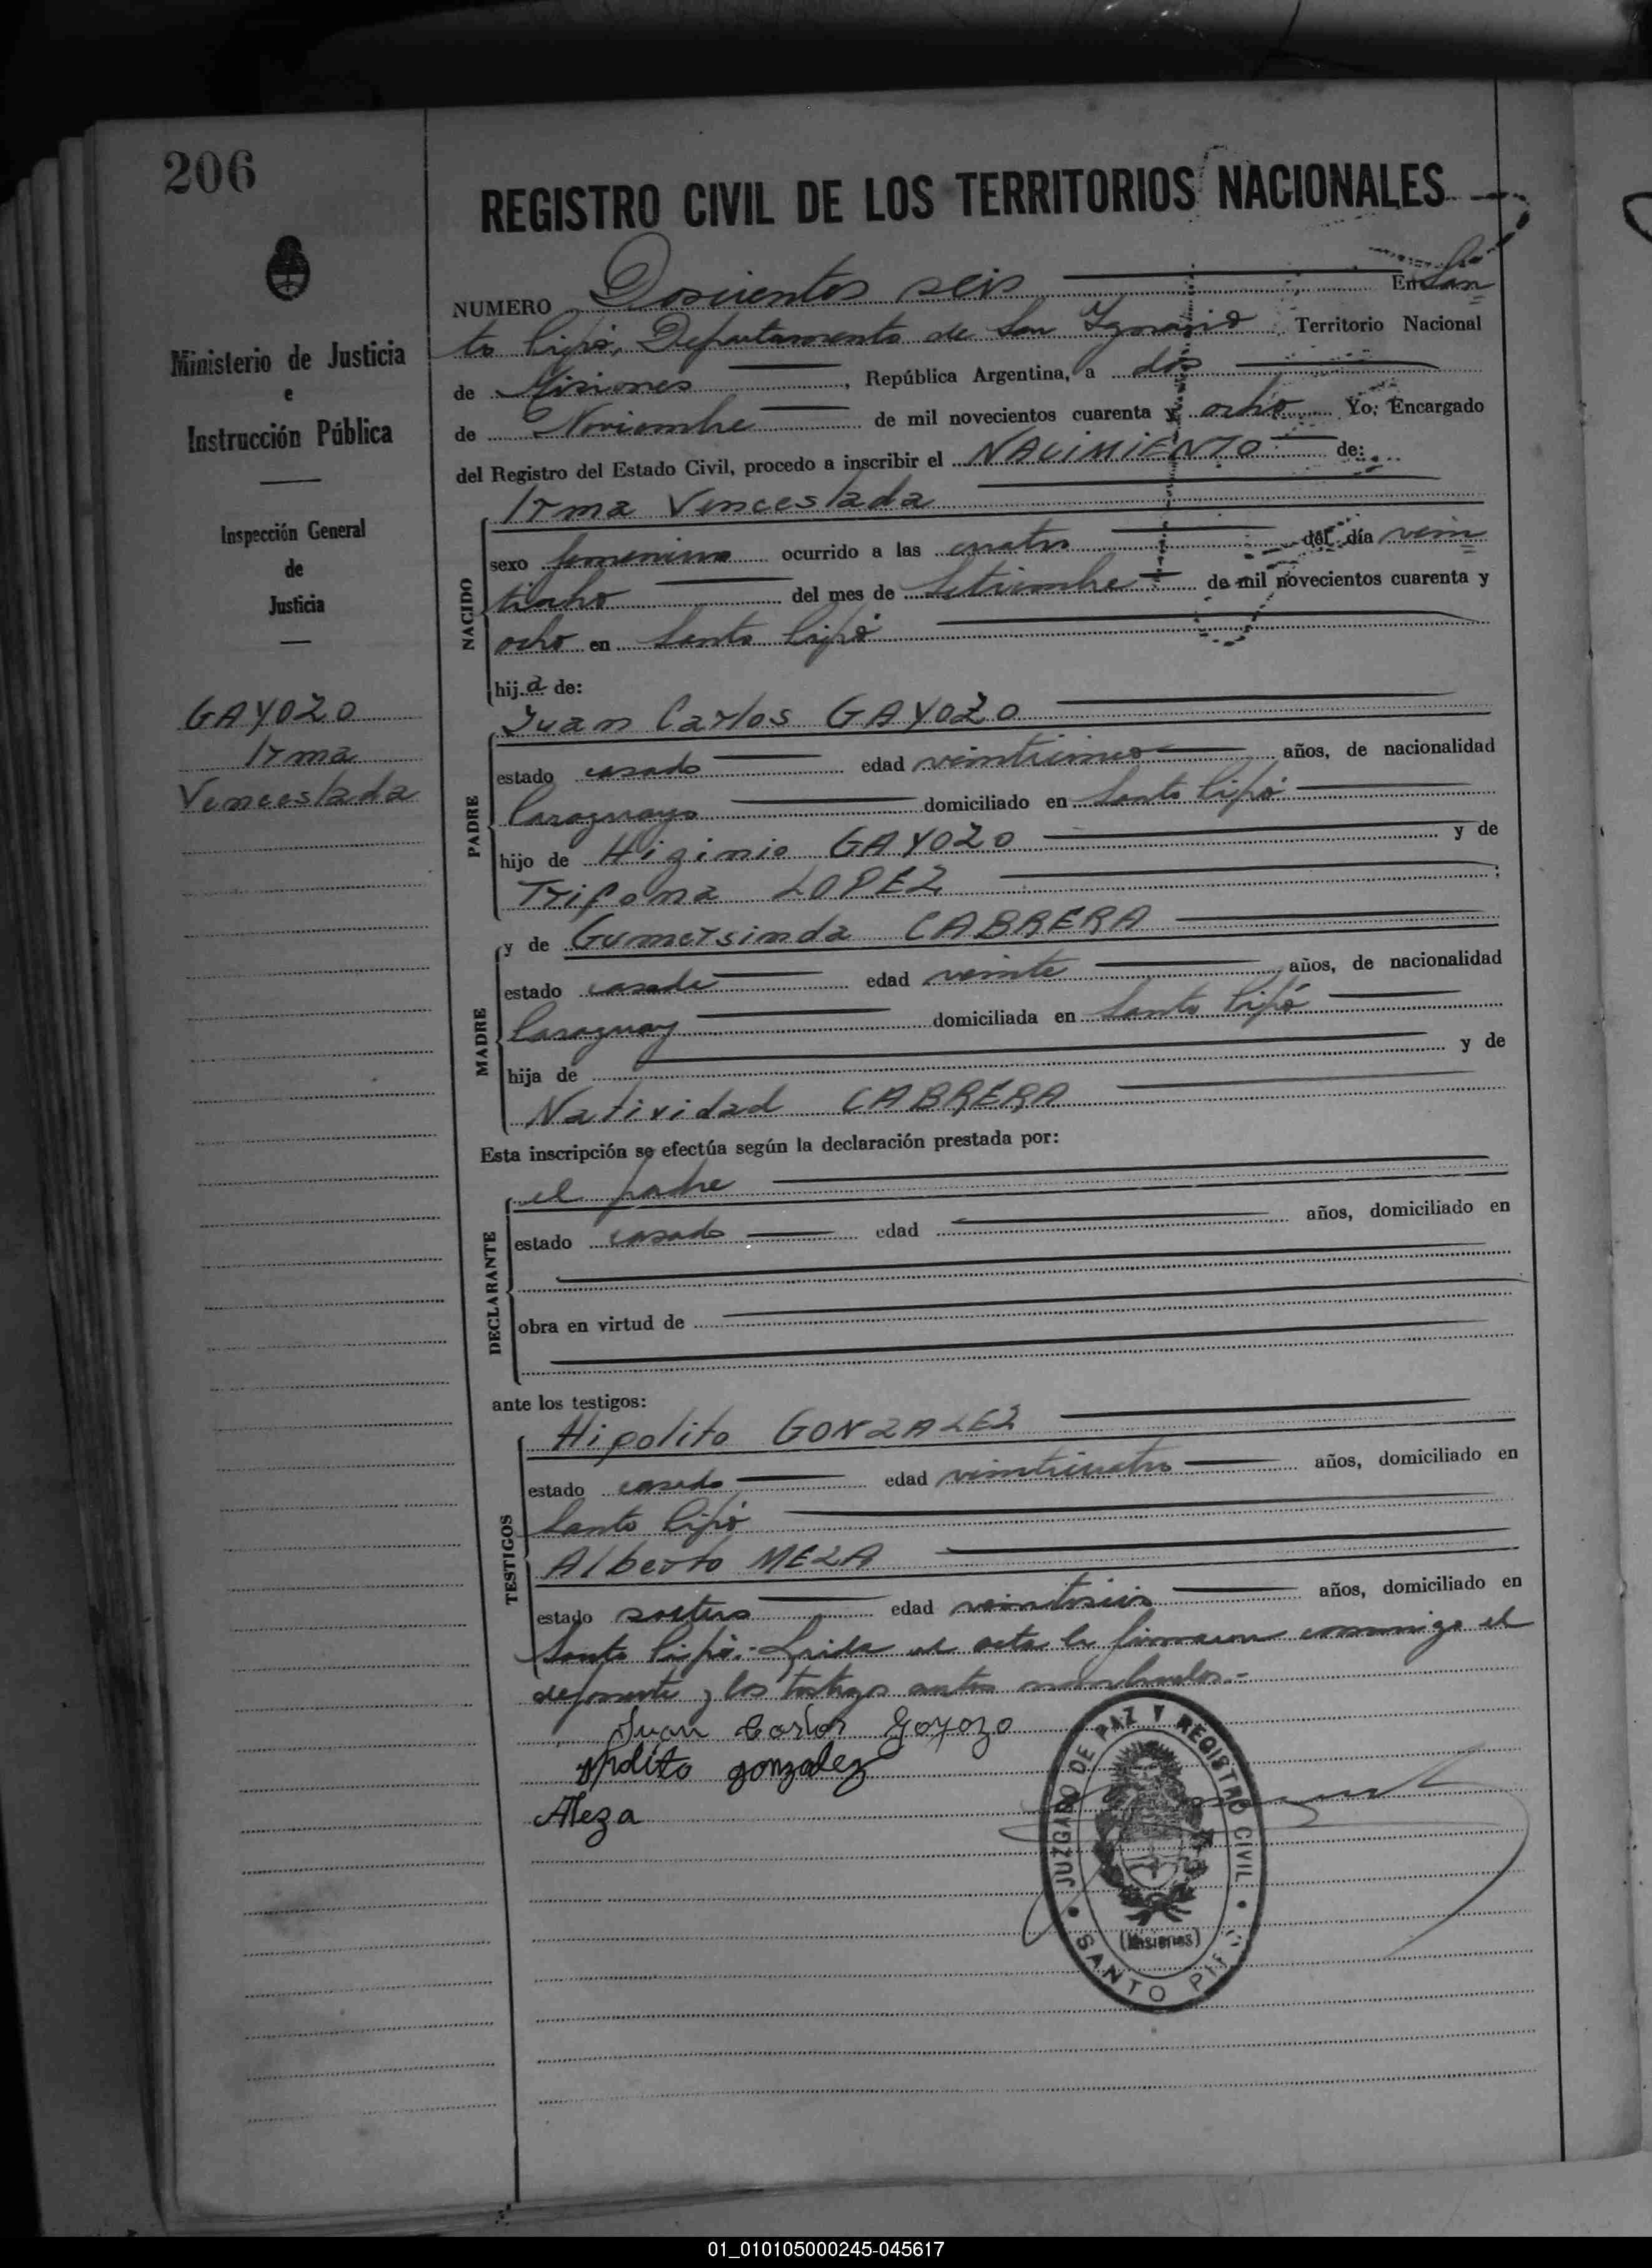 206
REGISTRO CIVIL DE LOS TERRITORIOS NACIONALES
Ministerio de Justicia
e
Instrucción Pública
Inspección General
de
Justicia
GAYOZO
Irma
Venceslada
NUMERO Doscientos seis En San
to Pipó, Departamento de San Ignacio Territorio Nacional
de Misiones, República Argentina, a dos
de Noviembre de mil novecientos cuarenta y ocho Yo, Encargado
del Registro del Estado Civil, procedo a inscribir el NACIMIENTO de:
Irma Venceslada
NACIDO
sexo femenino ocurrido a las cuatro del día vein
tiocho del mes de Setiembre de mil novecientos cuarenta y
ocho en Santo Pipó
hija de:
Juan Carlos GAYOZO
PADRE
estado casado edad veinticinco años, de nacionalidad
Paraguayo domiciliado en Santo Pipó
hijo de Higinio GAYOZO y de
Trifona LOPEZ;
MADRE
y de Gumersinda CABRERA
estado casada edad veinte años, de nacionalidad
Paraguay domiciliada en Santo Pipó
hija de y de
Natividad CABRERA
Esta inscripción se efectúa según la declaración prestada por:
DECLARANTE
el padre
estado casado edad años, domiciliado en
obra en virtud de
ante los testigos:
TESTIGOS
Hipolito GONZALEZ
estado casado edad veinticuatro años, domiciliado en
Santo Pipó
Alberto MEZA
estado soltero edad veintiseis años, domiciliado en
Santo Pipó.- Leida el acta la firmaron conmigo el
deponente y los testigos antes nombrados.=
Juan Carlos Gayozo
gonzalez
AMeza
JUZGADO DE PAZ Y REGISTRO CIVIL
(Misiones)
SANTO PIPÓ
01_010105000245-045617